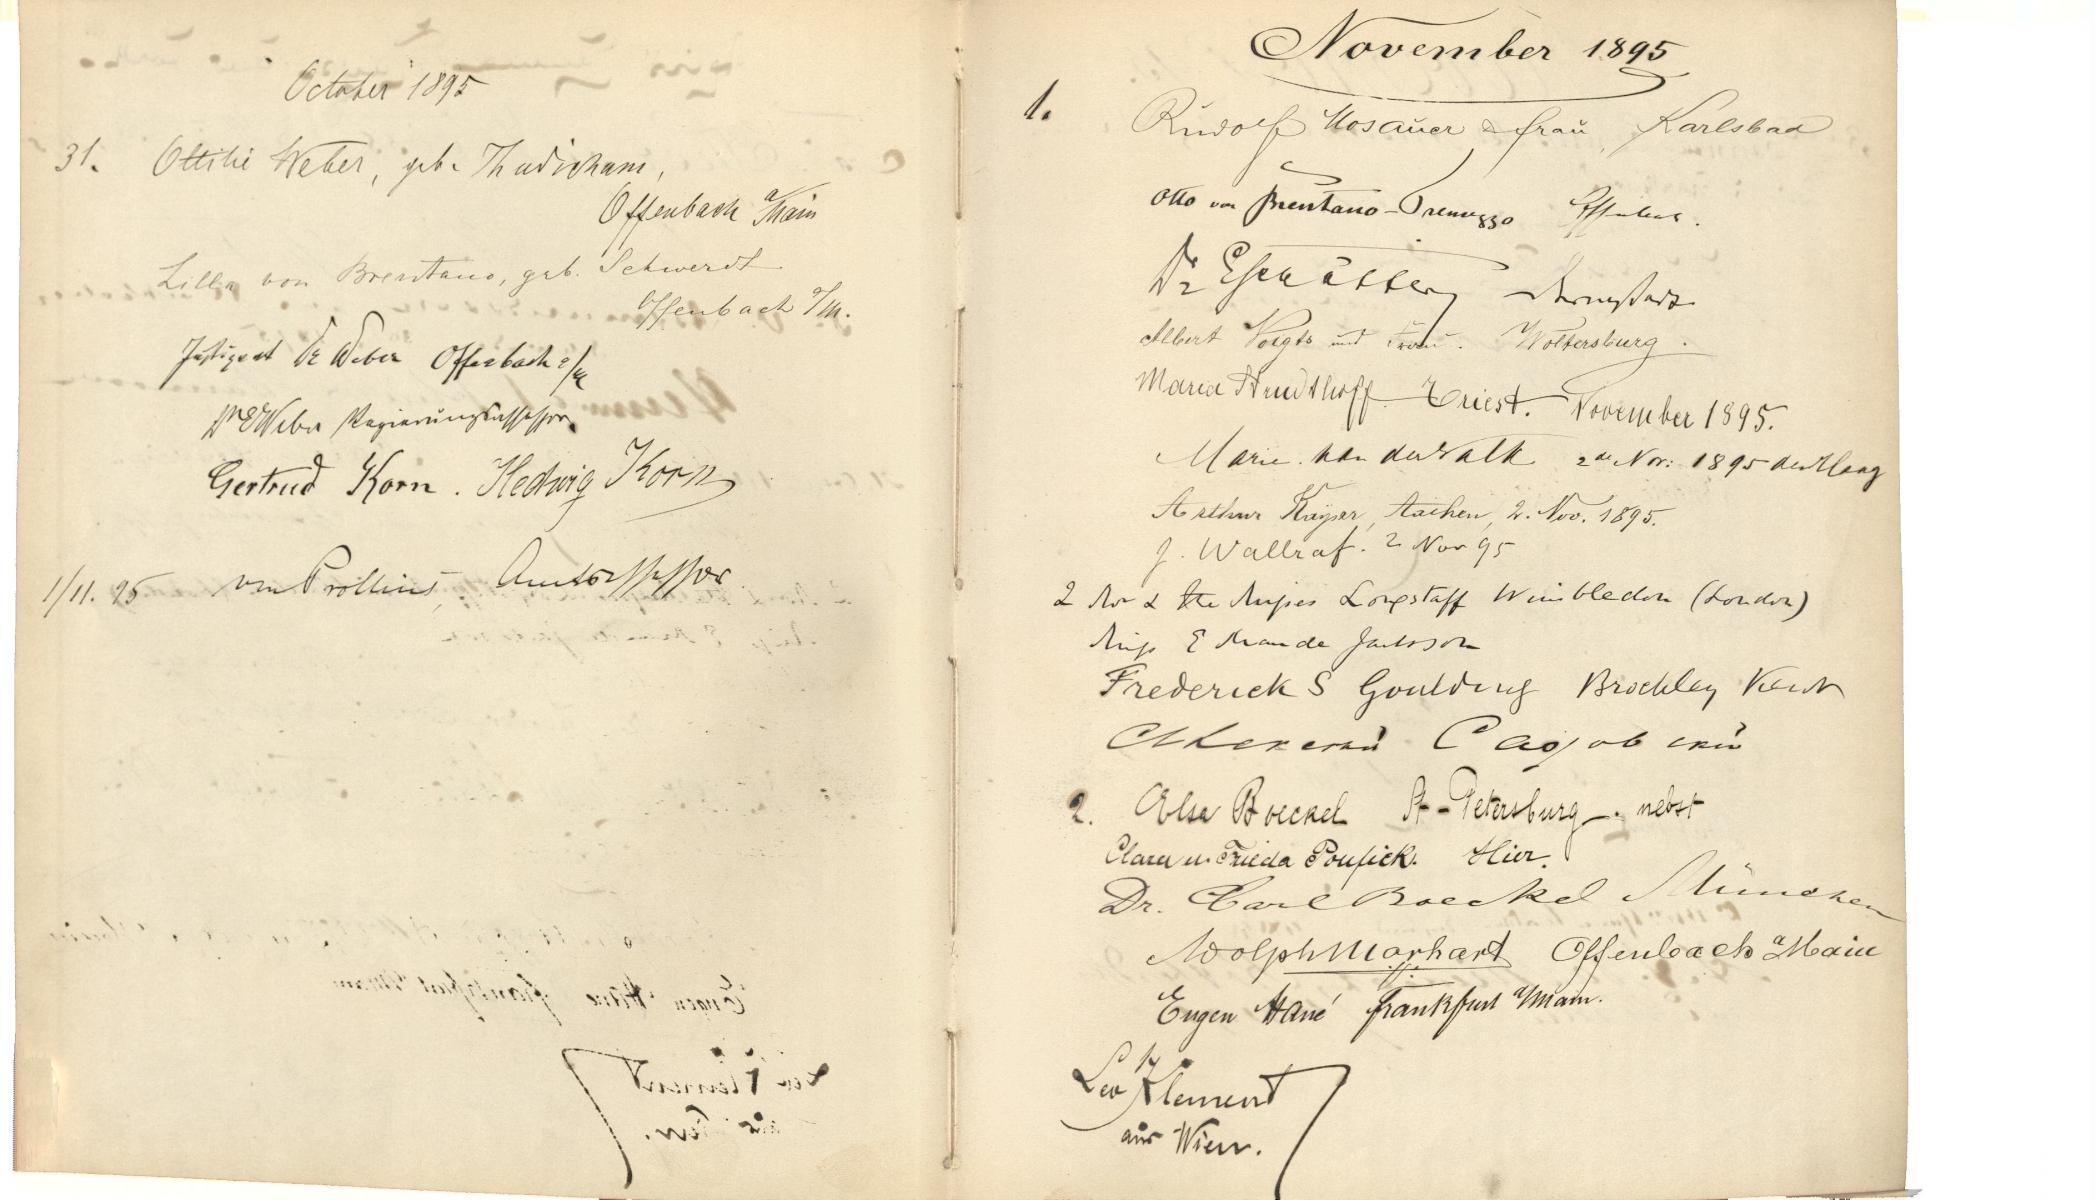 October 1895
31. Ottilie Weber, geb. Thudichum,
Offenbach a/Main
Lilla von Brentano, geb. Schwerdt
Offenbach a/M.
Justizrat Dr Weber Offenbach a/M
Dr E Weber Regierungsassessor
Gertrud Korn. Hedwig Korn
1/11. 95 von Prollius, Amtsassessor
November 1895
1. Rudolf Mosauer & Frau, Karlsbad
Otto von Brentano-Tremezzo Offenbach.
Dr Darmstadt
Albert Voigts und Frau. Woltersburg.
Maria Triest. November 1895.
Marie van der Valk 2de Nov: 1895 den Haag
Arthur Kayser, Aachen, 2. Nov. 1895.
J. Wallraf. 2 Nov 95
2 Mr & the Misses Longstaff Wimbledon (London)
Miss E Maude Jackson
Frederick S Goulding Brockley Kent
Алексей Садовский
2. Elsa Boeckel St-Petersburg. nebst
Clara u. Frieda Ponfick. Hier.
Dr. Carl Boeckel München
Adolph Marhart Offenbach a Main
Eugen Hané Frankfurt a/Main.
Leo Klement
aus Wien.